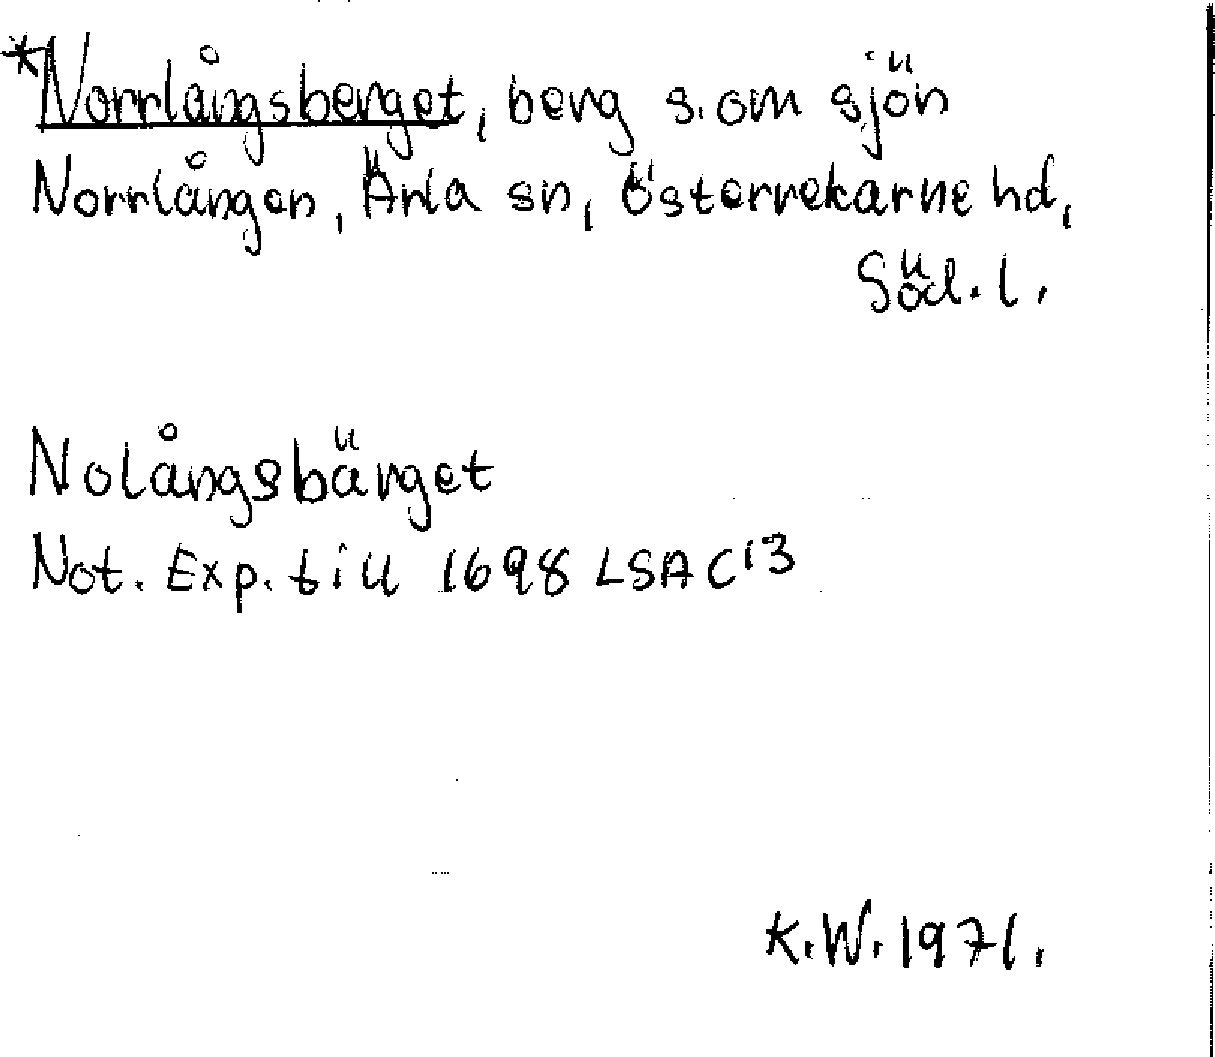 *Norrlångsberget, berg s. om sjön
Norrlången, Ärla sn, Österrekarne hd,
Söd. l.
Nolångsbärget
Not. Exp. till 1698 LSA C13
K.W. 1971.